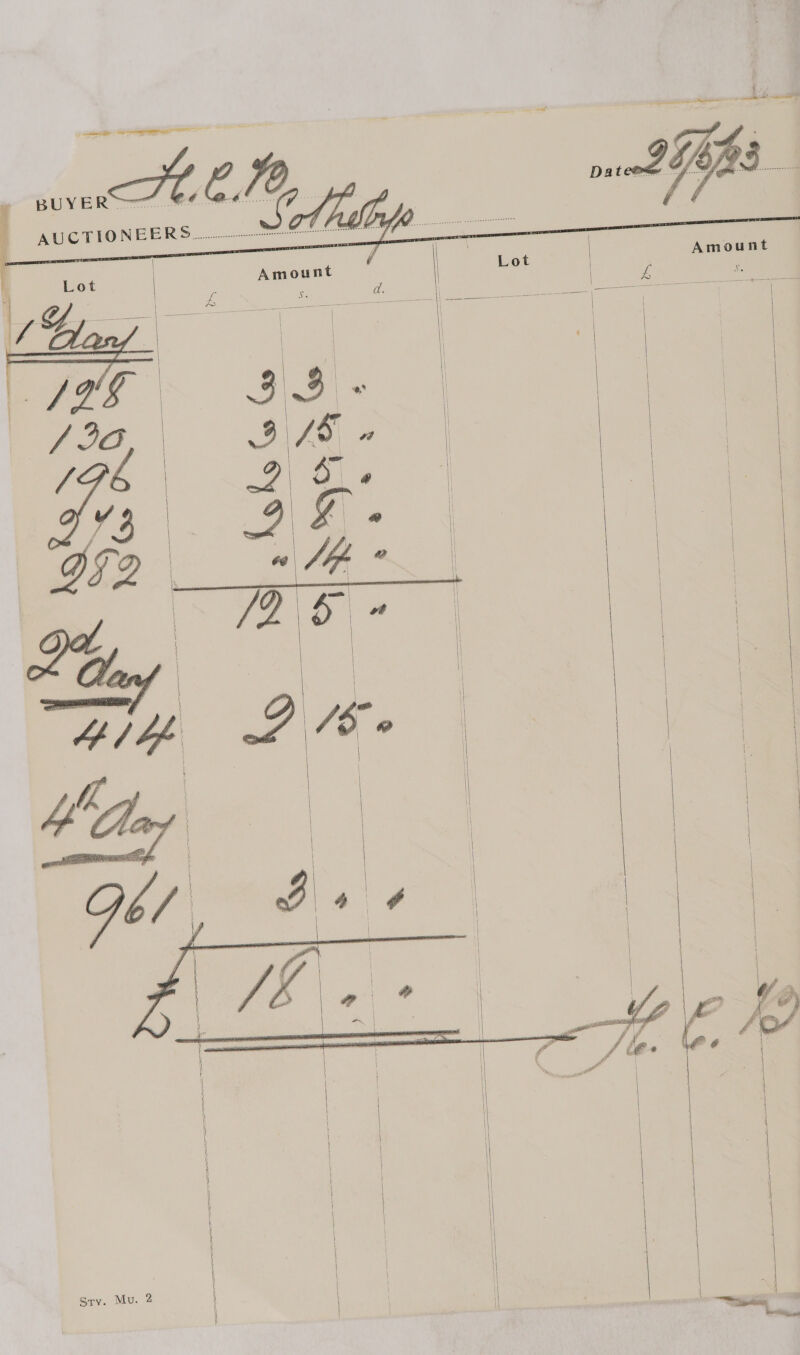 BUYER H.C.
Date 28/5/
AUCTIONEERS Sothebys
Lot Amount Lot Amount
£ s. d. £ s.
1st Day
128 3 3 "
130, 3 15 "
196 2 5 "
273 2 8 "
282 " 14 "
12 5 "
2d Day
414 2 15 "
4th Day
961 3 " "
£ 18 " "
H.C.
Sty. Mu. 2